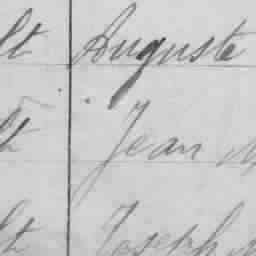 lt Auguste
lt Jean
lt Joseph